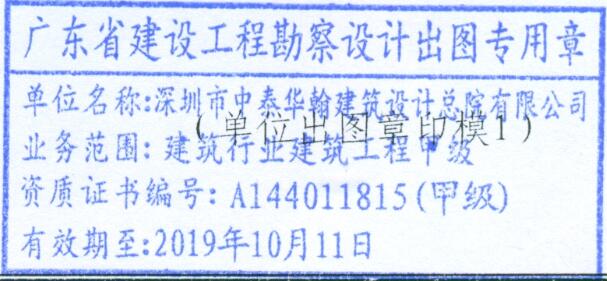 广东省建设工程勘察设计出图专用章
单位名称:深圳市中泰华翰建筑设计总院有限公司
(单位出图章印模1)
业务范围: 建筑行业建筑工程甲级
资质证书编号: A144011815(甲级)
有效期至:2019年10月11日